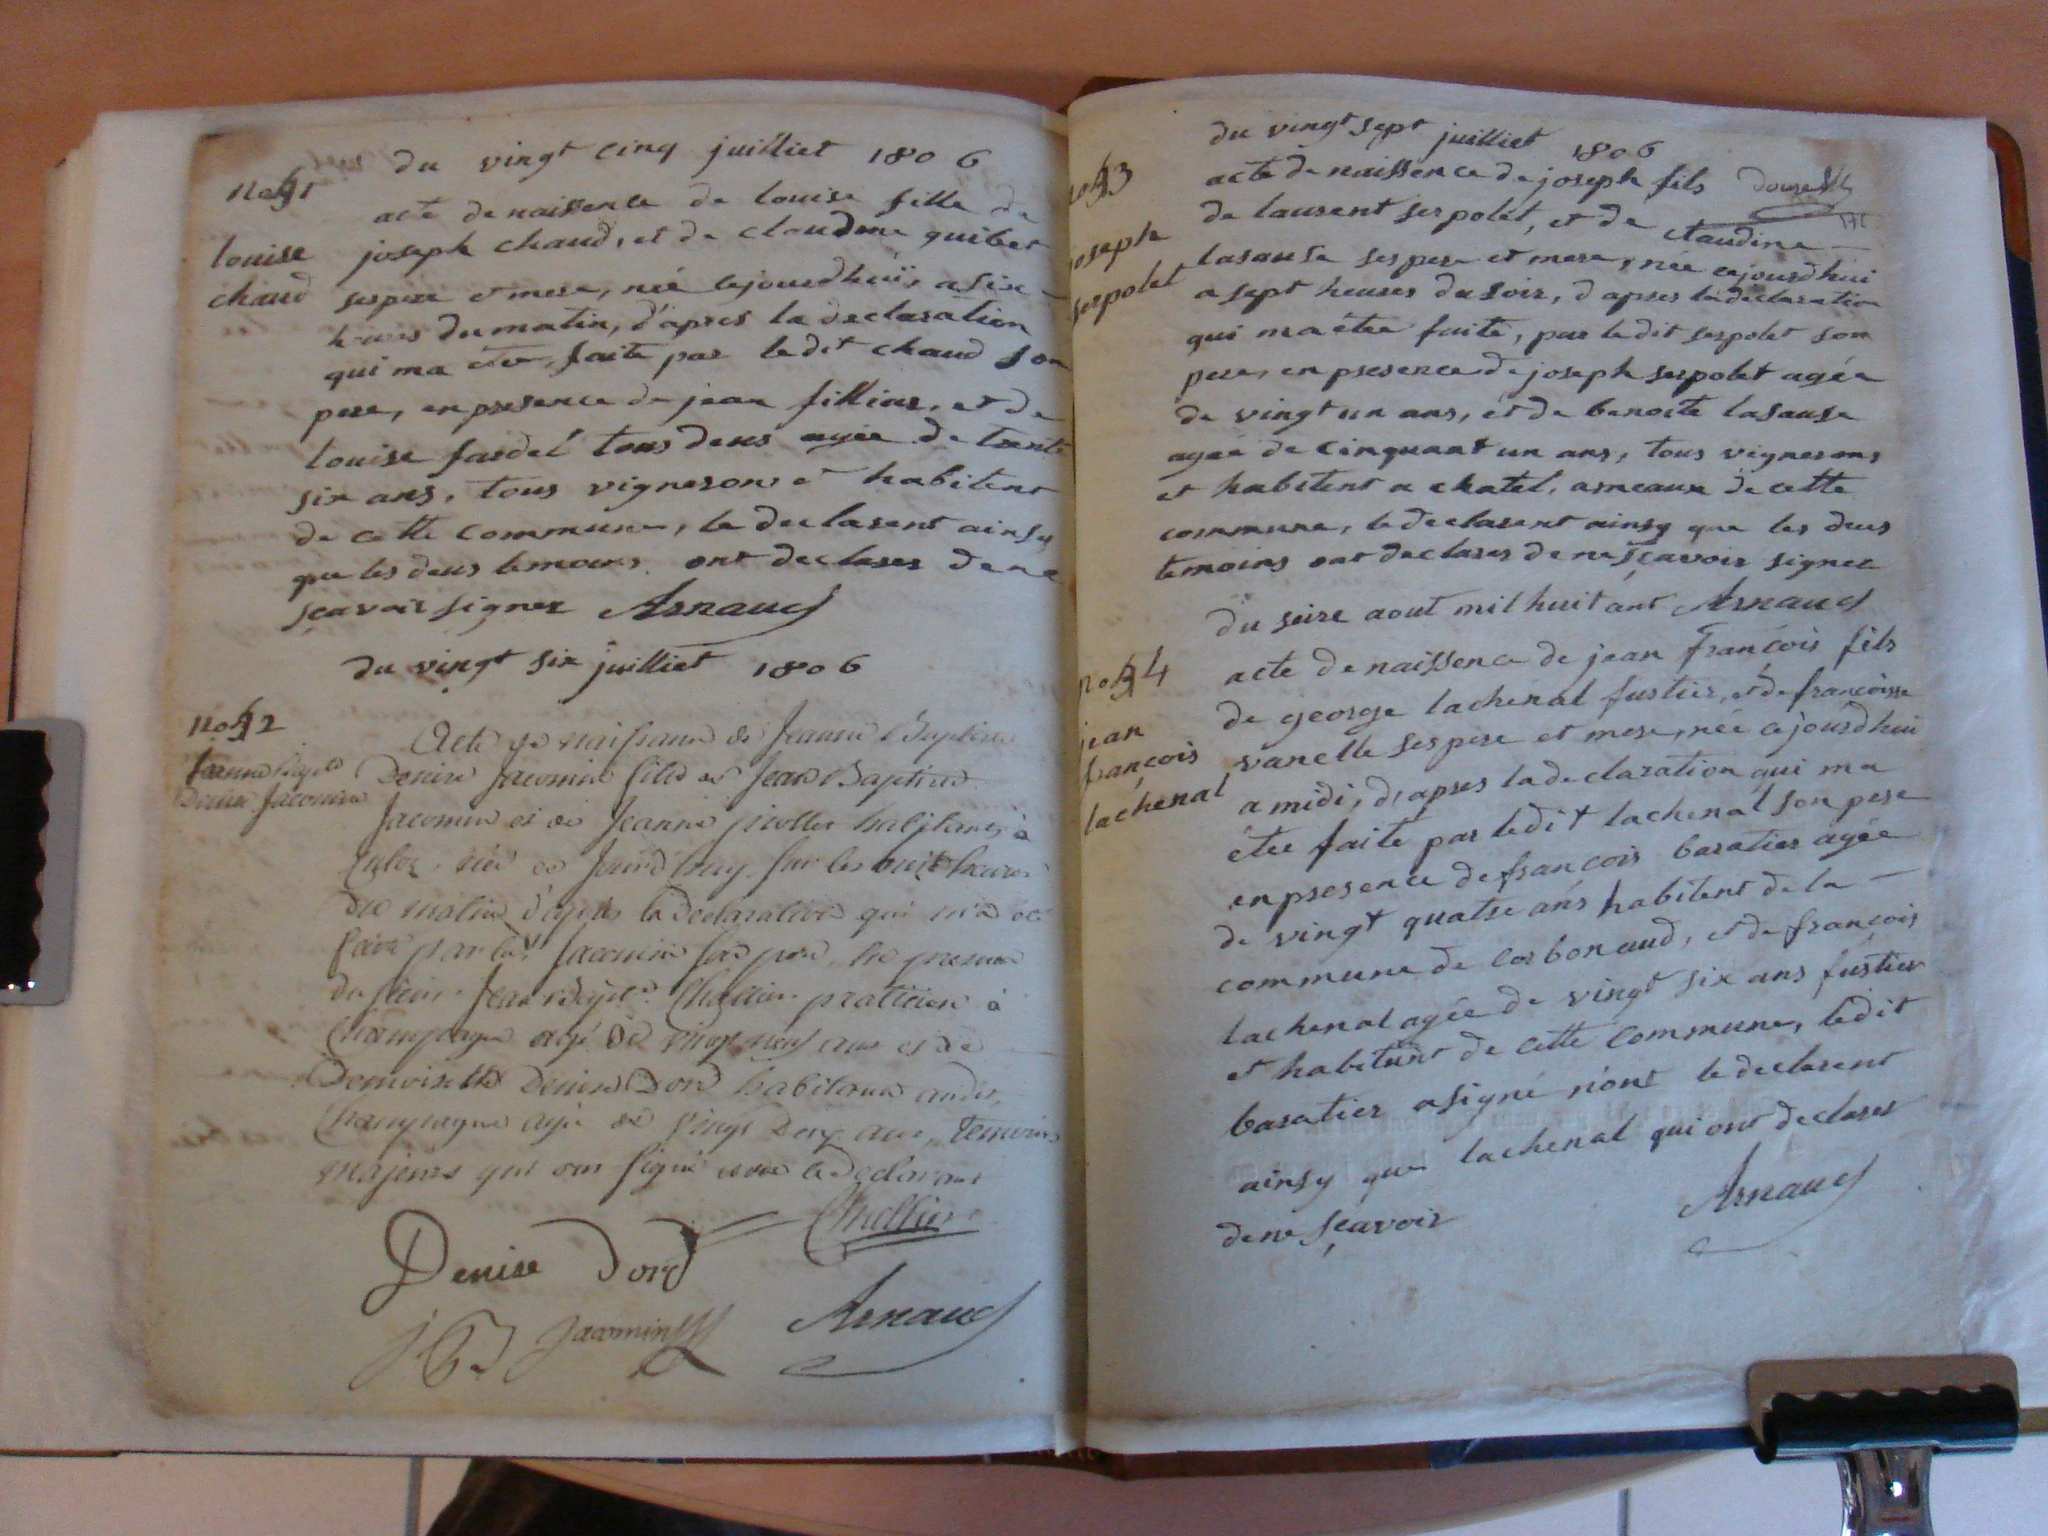 du vingt cinq juilliet 1806
louise
chaud
acte de naissence de louise fille de
joseph chaud, et de claudine guibert
ses pere et mere, née cejourdhuit a six
heures du matin, d'apres la declaration
qui ma étée, faite par ledit chaud son
pere, en presence de jean filliux, et de
louise fardel tous deus agée de trente
six ans, tous vignerons et habitent
de cette commune, le declarent ainsy
que les deus temoins ont declares de ne
sçavoir signer Arnaud
du vingt six juilliet 1806
Denise Jacomin
Acte de naissance de Jeanne Baptiste
Denise Jacomin fille de Jean Baptiste
Jacomin et de Jeanne habitants à
née ce jourd'huy sur les huit heures
du matin d'après la déclaration qui m'a été
faite par led. Jacomin son père, en presence
du sieur Jean Bapte. Chellier praticien à
Champagne agé de vingt neuf ans et de
Demoiselle Denise Dord habitante audit
Champagne agée de vingt Deux ans, temoins
majeurs qui ont signé avec le déclarant
Chellier
Denise Dord
JB Jacomin Arnaud
du vingt sept juilliet 1806
joseph
serpolet
acte de naissence de joseph fils
de laurent serpolet, et de claudine
lasause ses pere et mere, née cejourdhui
a sept heures du soir, d apres la declaration
qui ma étée faite, par ledit serpolet son
pere, en presence de joseph serpolet agée
de vingt un ans, et de benoite lasause
agée de cinquant un ans, tous vignerons
et habitent a chatel, ameaux de cette
commune, le declarent ainsy que les deus
temoins ont declares de ne sçavoir signer
du seize aout mil huit ant Arnaud
jean
françois
lachenal
acte de naissence de jean françois fils
de george lachenal fustier, et de françoisse
vanelle ses pere et mere, née cejourdhui
a midi, d'apres la declaration qui ma
étée faite par ledit lachenal son pere
en presence de françois baratier agée
de vingt quatre ans habitent de la
commune de corbonaud, et de françois
lachenal agée de vingt six ans fustier
et habitant de cette commune, ledit
baratier a signé n'ont le declarent
ainsy que lachenal qui ont declares
de ne sçavoir Arnaud